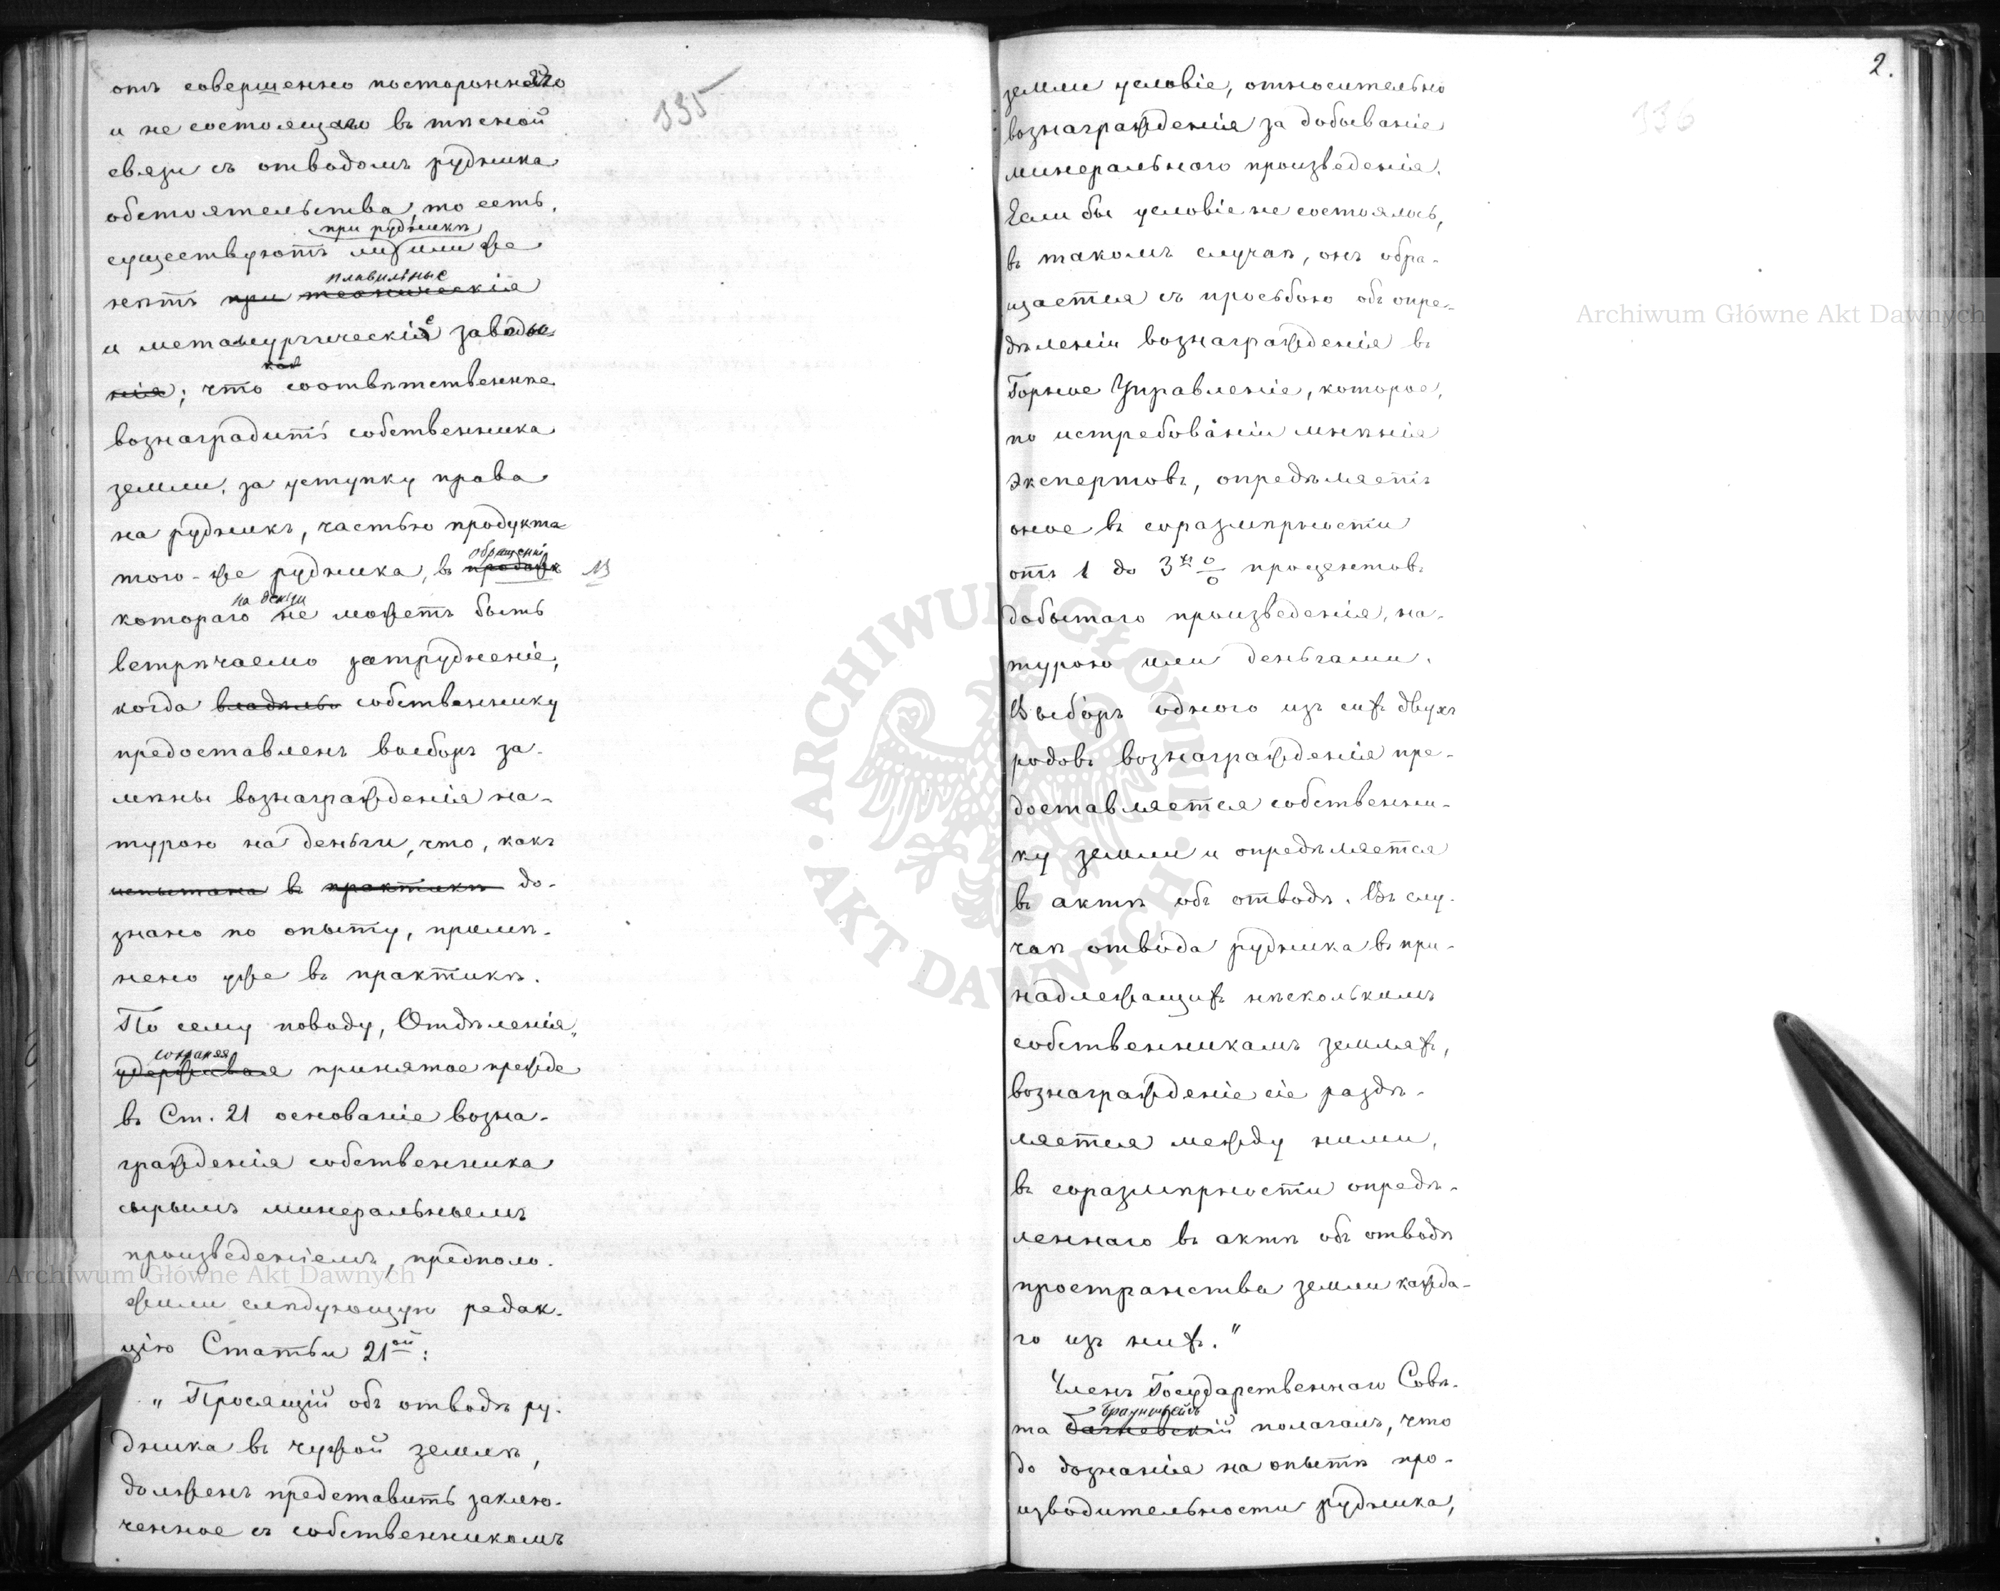 135
отъ совершенно посторонняго
и не состоящаго въ тѣсной
связи съ отводомъ рудника
обстоятельства, то есть,
при рудникѣ
существуютъ ли или же
плавильные
нѣтъ при техническія
и металлургическіе заводы
нія; что соотвѣтственнѣе
вознаградить собственника
земли, за уступку права
на рудникъ, частью продукта
обращеніи
того-же рудника, въ продажѣ
на деньги
котораго не можетъ быть
встрѣчаемо затрудненіе,
когда владѣльц собственнику
предоставленъ выборъ за-
мѣны вознагражденія на-
турою на деньги, что, какъ
испытана въ практикѣ до-
знано по опыту, примѣ-
нено уже въ практикѣ.
По сему поводу, Отдѣленія,
сохраняя
удерживая принятое прежде
въ Ст. 21 основаніе возна-
гражденія собственника
сырымъ минеральнымъ
произведеніемъ, предполо-
жили слѣдующую редак-
цію Статьи 21ой:
„Просящій объ отводѣ ру-
дника въ чужой землѣ,
долженъ представить заклю-
ченное съ собственникомъ
2.
136
земли условіе, относительно
вознагражденія за добываніе
минеральнаго произведенія.
Если бы условіе не состоялось,
въ такомъ случаѣ, онъ обра-
щается съ просьбою объ опре-
дѣленіи вознагражденія въ
Горное Управленіе, которое,
по истребованіи мнѣнія
экспертовъ, опредѣляетъ
оное въ соразмѣрности
отъ 1 до 3хъ % процентовъ
добытаго произведенія, на-
турою или деньгами.
Выборъ одного изъ сихъ двухъ
родовъ вознагражденія пре-
доставляется собственни-
ку земли и опредѣляется
въ актѣ объ отводѣ. Въ слу-
чаѣ отвода рудника въ при-
надлежащихъ нѣсколькимъ
собственникамъ земляхъ,
вознагражденіе сіе раздѣ-
ляется между ними,
въ соразмѣрности опредѣ-
леннаго въ актѣ объ отводѣ
пространства земли каждa-
го изъ нихъ."
Членъ Государственнаго Совѣ-
Брауншвейгъ
та полагалъ, что
до дознанія на опытѣ про-
изводительности рудника,
Archiwum Główne Akt Dawnych
Archiwum Główne Akt Dawnych
ARCHIWUM GŁÓWNE · AKT DAWNYCH ·